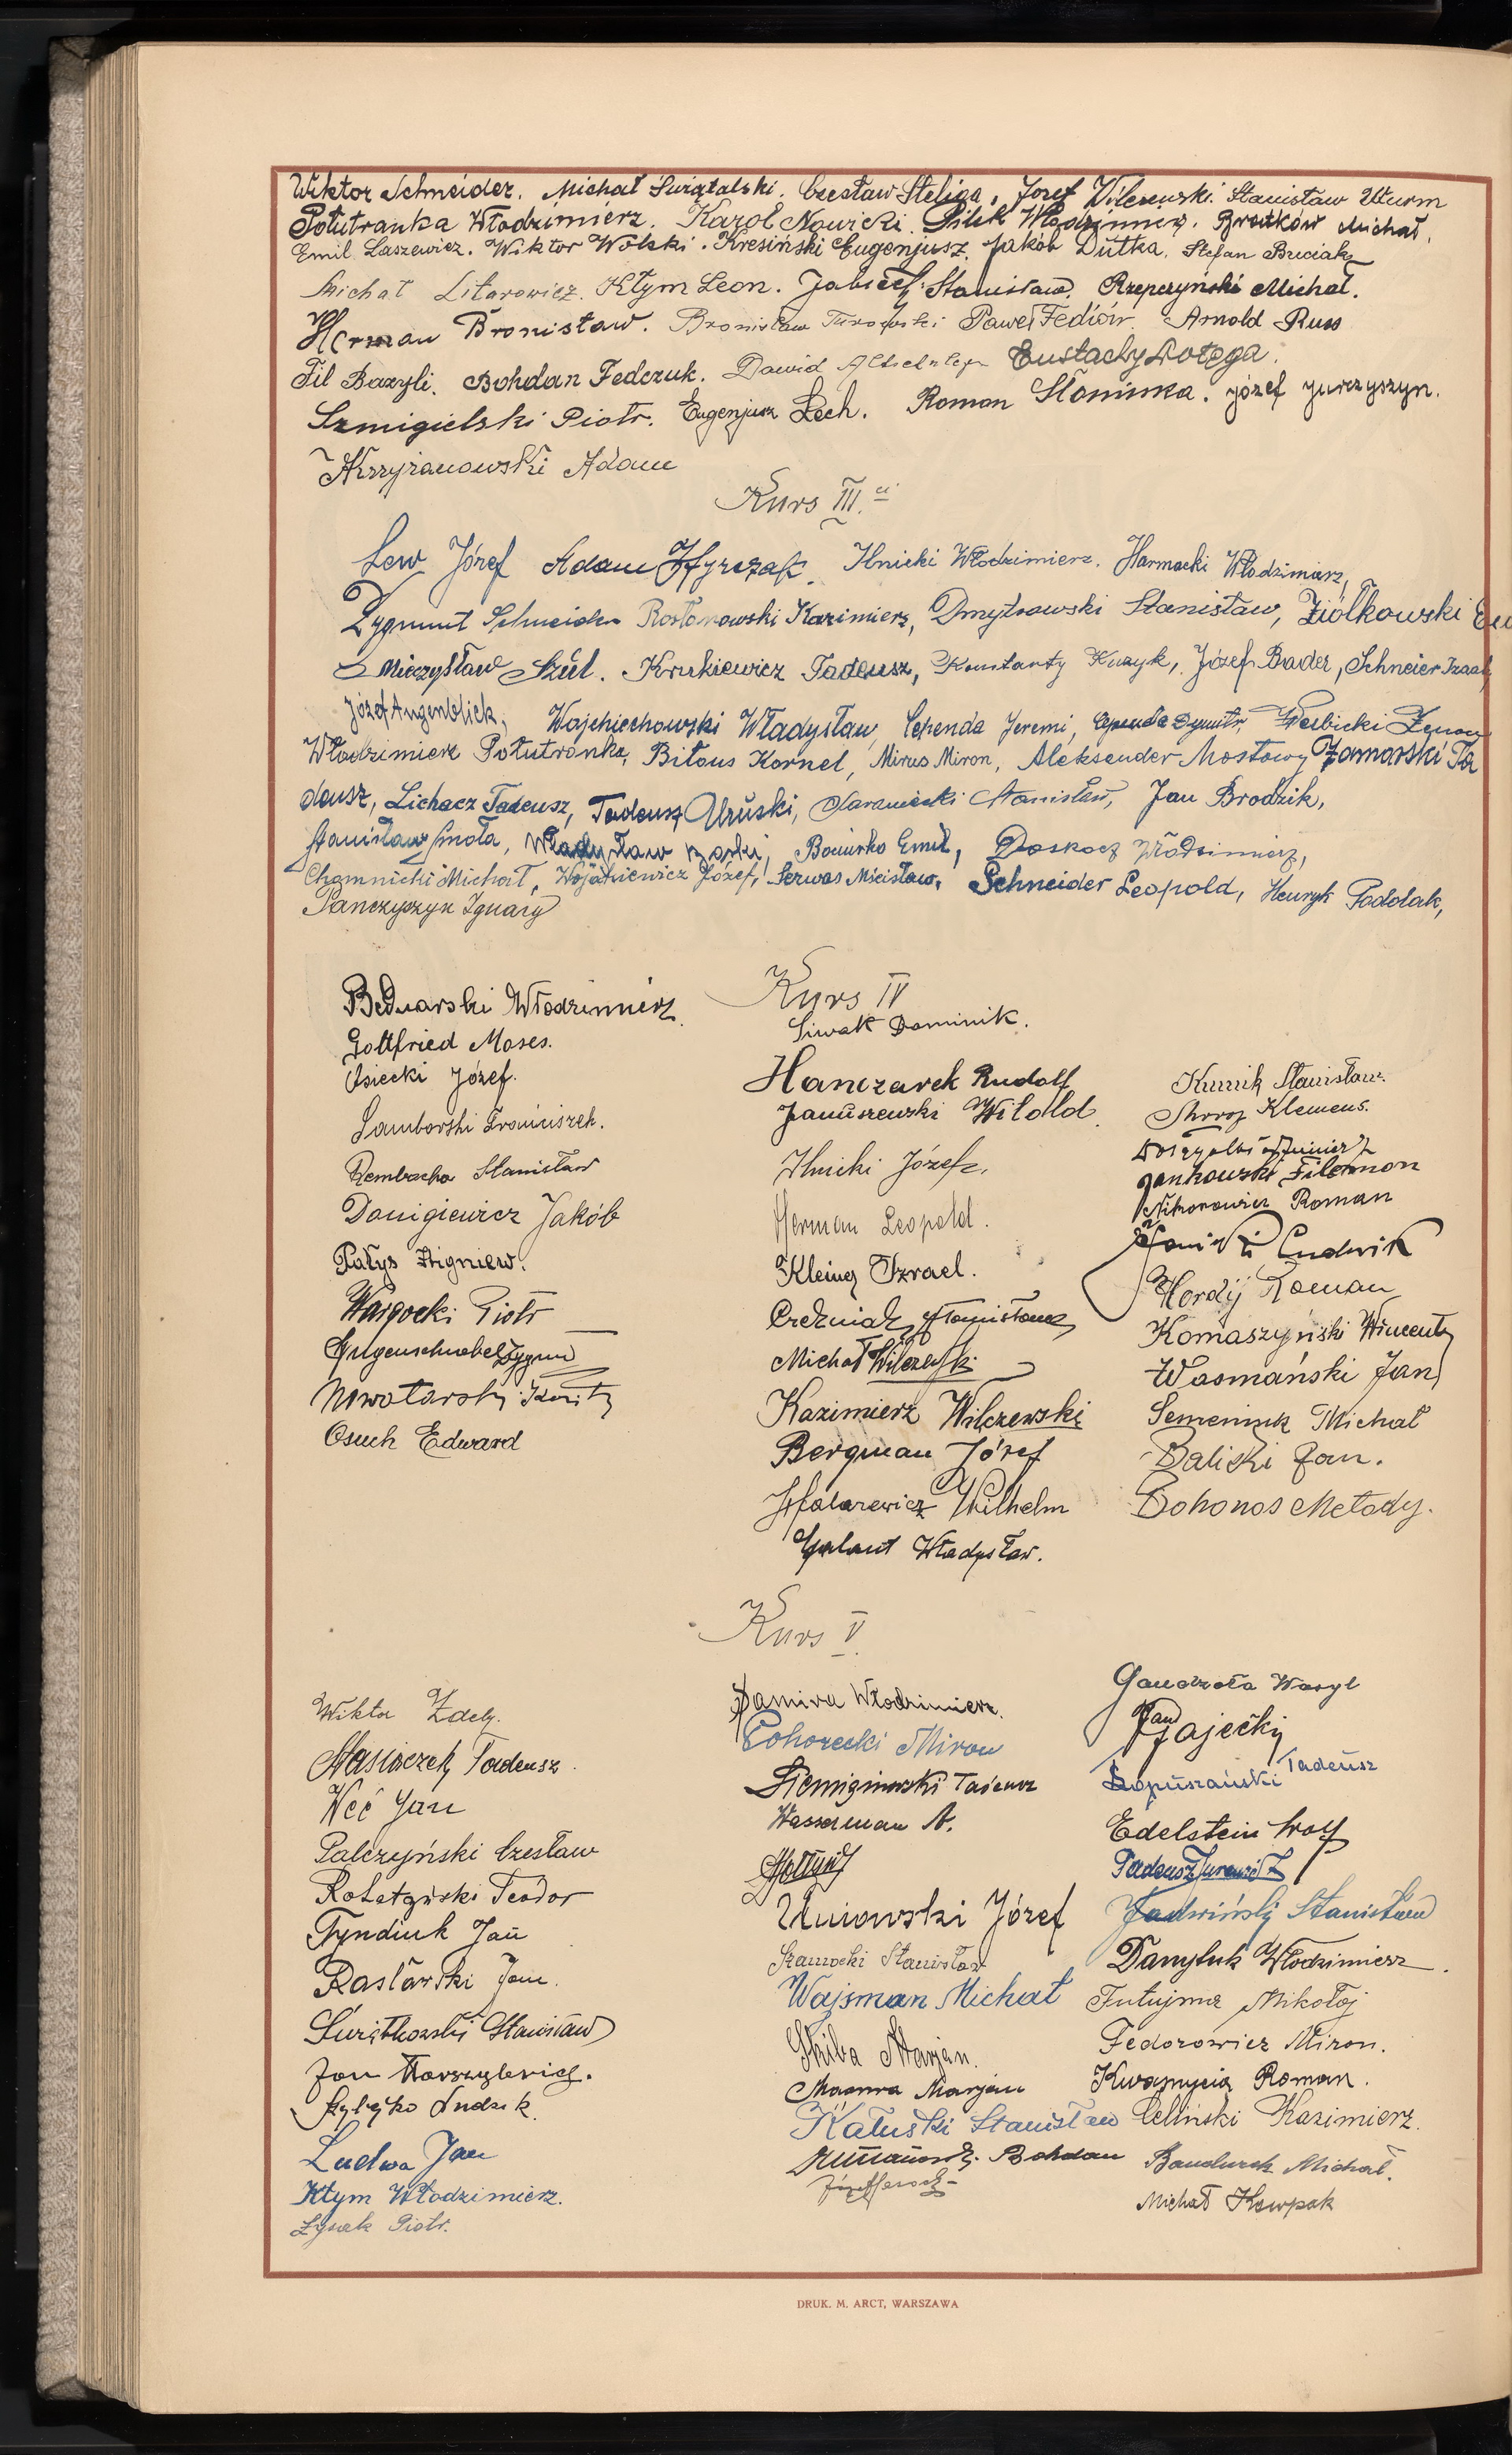 Wiktor Schneider. Michał Świątalski. Czesław Steliga, Józef Wilczewski. Stanisław Wurm
Połutranka Włodzimierz. Karol Nowicki. Pilch Włodzimierz. Brodków Michał,
Emil Laszewicz. Wiktor Wolski. Kresiński Eugenjusz. Jakób Dutka. Stefan Buciak
Michał Litarowicz. Kłym Leon. Stanisław. Rzepczyński Michał.
Herman Bronisław. Bronisław Turowski Paweł Fediów. Arnold Russ
Fil Bazyli. Bohdan Fedczuk. Dawid Eustachy Potęga.
Szmigielski Piotr. Eugenjusz Lech. Roman Słonimka. Józef Jurczyszyn.
Krzyżanowski Adam
Kurs III.ci
Lew Józef Adam Hyrczak. Ilnicki Włodzimierz. Harmacki Włodzimierz,
Zygmunt Schneider Kazimierz, Dmytrowski Stanisław, Ziółkowski
Mieczysław Szul. Krukiewicz Tadeusz, Konstanty Kuzyk, Józef Brader, Schneier Izaak
Józef Augenblick, Wojchiechowski Władysław, Cependa Jeremi, Cependa Dymitr, Werbicki Zenon
Włodzimierz Połutranka, Biłous Kornel, Mirus Miron, Aleksander Mostowy Zamarski Ta
deusz, Lichacz Tadeusz, Tadeusz Uruski, Stanisław, Jan Brodzik,
Stanisław Smoła, Władysław Emil, Doskocz Włodzimierz,
Chomnicki Michał, Wojatkiewicz Józef, Serwas Mieisław, Schneider Leopold, Henryk Podolak,
Panczyszyn Ignacy
Kurs IV
Bednarski Włodzimierz
Gottfried Moses.
Osiecki Józef.
Samborski Franciszek.
Rembacha Stanisław
Danigiewicz Jakób
Pałys Zbigniew.
Wargocki Piotr
Gugenschnabel Zygm
Nowotarski
Osuch Edward
Siwak Dominik.
Hanczarek Rudolf
Januszewski Witold
Ilnicki Józef.
Herman Leopold.
Kleiner Izrael.
Stanisław
Michał Wilczewski
Kazimierz Wilczewski
Bergman Józef
Hałarewicz Wilhelm
Galant Władysław.
Kunik Stanisław.
Mroz Klemens.
Jankowski Filemon
Nikorowicz Roman
Ludwik
Hordij Roman
Komaszyński Wincenty
Wasmański Jan
Semeniuk Michał
Baliski Jan.
Bohonos Metody.
Kurs V
Wiktor
Stasiaczek Tadeusz.
Weć Jan
Palczyński Czesław
Teodor
Tyndiuk Jan
Rastawski Jan.
Świątkowski Stanisław
Jan
Ludwa Jan
Kłym Włodzimierz.
Łysek Piotr.
Damira Włodzimierz.
Pohorecki Miron
Siemiginowski Tadeusz
Wasserman A.
Uniowski Józef
Szamocki Stanisław
Wajsman Michał
Skiba Marjan.
Marjan
Kałuski Stanisław
Bohdan
Gaudzoła Wasyl
Jan Zajećkij
Łopuszański Tadeusz
Edelstein Wolf
Tadeusz
Jadwiński Stanisław
Danyluk Włodzimierz.
Futujma Mikołaj
Fedorowicz Miron.
Kwasnycia Roman.
Celiński Kazimierz.
Bandurek Michał.
Michał Kowpak
DRUK. M. ARCT, WARSZAWA